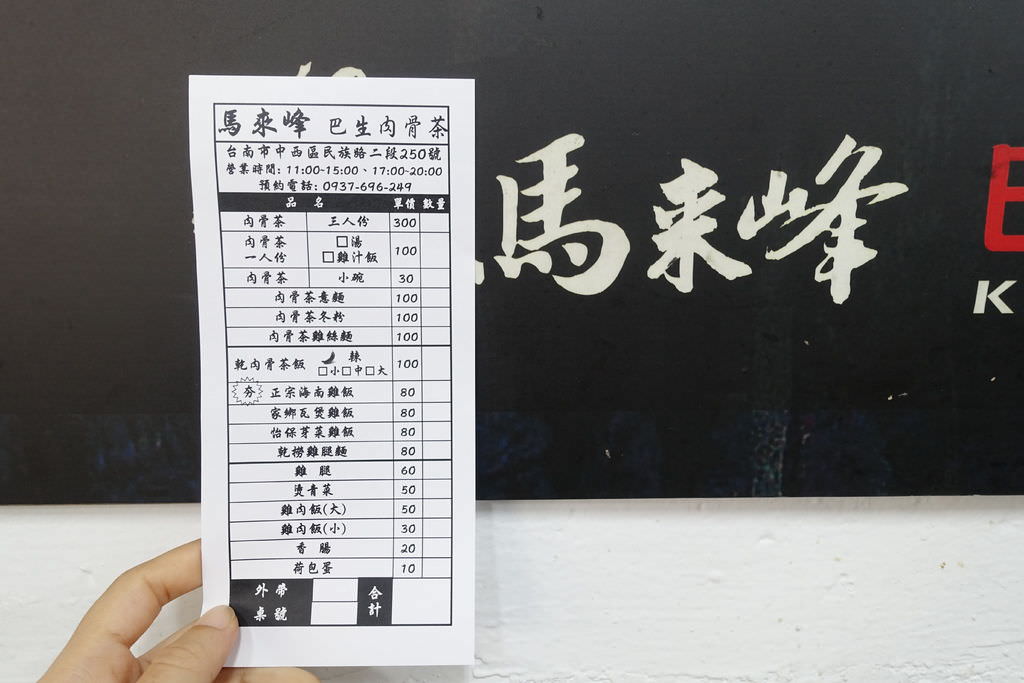 馬來峰 巴生肉骨茶
台南市中西區民族路二段250號
營業時間: 11:00~15:00、17:00~20:00
預約電話: 0937-696-249
品 名 單價 數量
肉骨茶 三人份 300
肉骨茶 一人份 □湯 □雞汁飯 100
肉骨茶 小碗 30
肉骨茶意麵 100
肉骨茶冬粉 100
肉骨茶雞絲麵 100
乾肉骨茶飯 辣 □小□中□大 100
夯 正宗海南雞飯 80
家鄉瓦煲雞飯 80
怡保芽菜雞飯 80
乾撈雞腿麵 80
雞 腿 60
燙青菜 50
雞肉飯(大) 50
雞肉飯(小) 30
香 腸 20
荷包蛋 10
外帶 合計
桌號
馬来峰
K